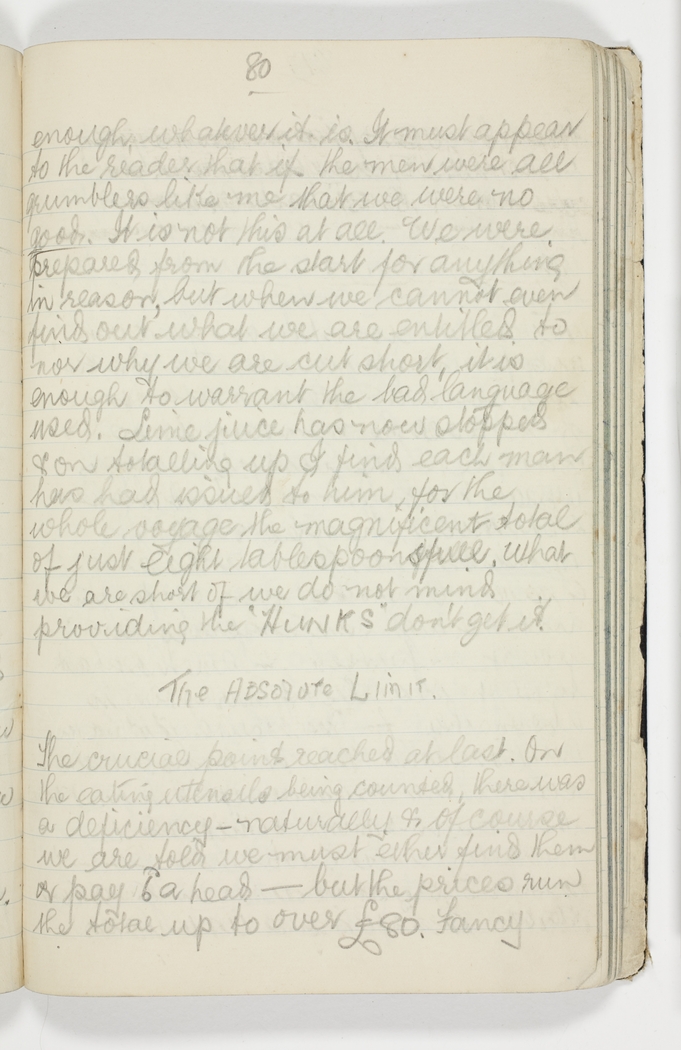 80
enough, whatever it is. It must appear
to the reader that if the men were all
grumblers like me that we were no
good. It is not this at all. We were
prepared from the start for anything
in reason, but when we cannot even
find out what we are entitled to
nor why we are cut short, it is
enough to warrant the bad language
used. Lime juice has now stopped
& on totalling up I find each man
has had issued to him, for the
whole voyage the magnificent total
of just eight tablespoonsfull. What
we are short of we do not mind
providing the "HUNKS" don't get it.
The Absolute Limit.
The crucial point reached at last. On
the eating utensils being counted, there was
a deficiency - naturally & of course
we are told we must either find them
or pay a head — but the prices run
the total up to over £80. Fancy